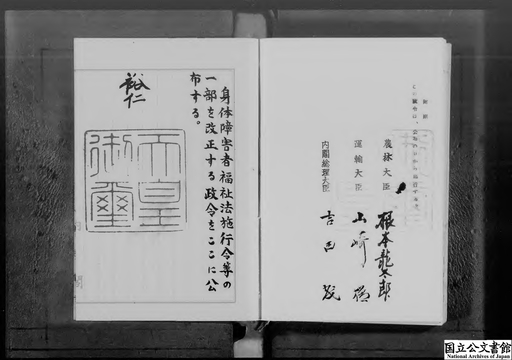 身体障害者福祉法施行令等の
一部を改正する政令をここに公
布する。
裕仁
天皇
御璽
農林大臣 根本龍太郎
運輸大臣 山崎猛
内閣総理大臣 吉田茂
国立公文書館
National Archives of Japan